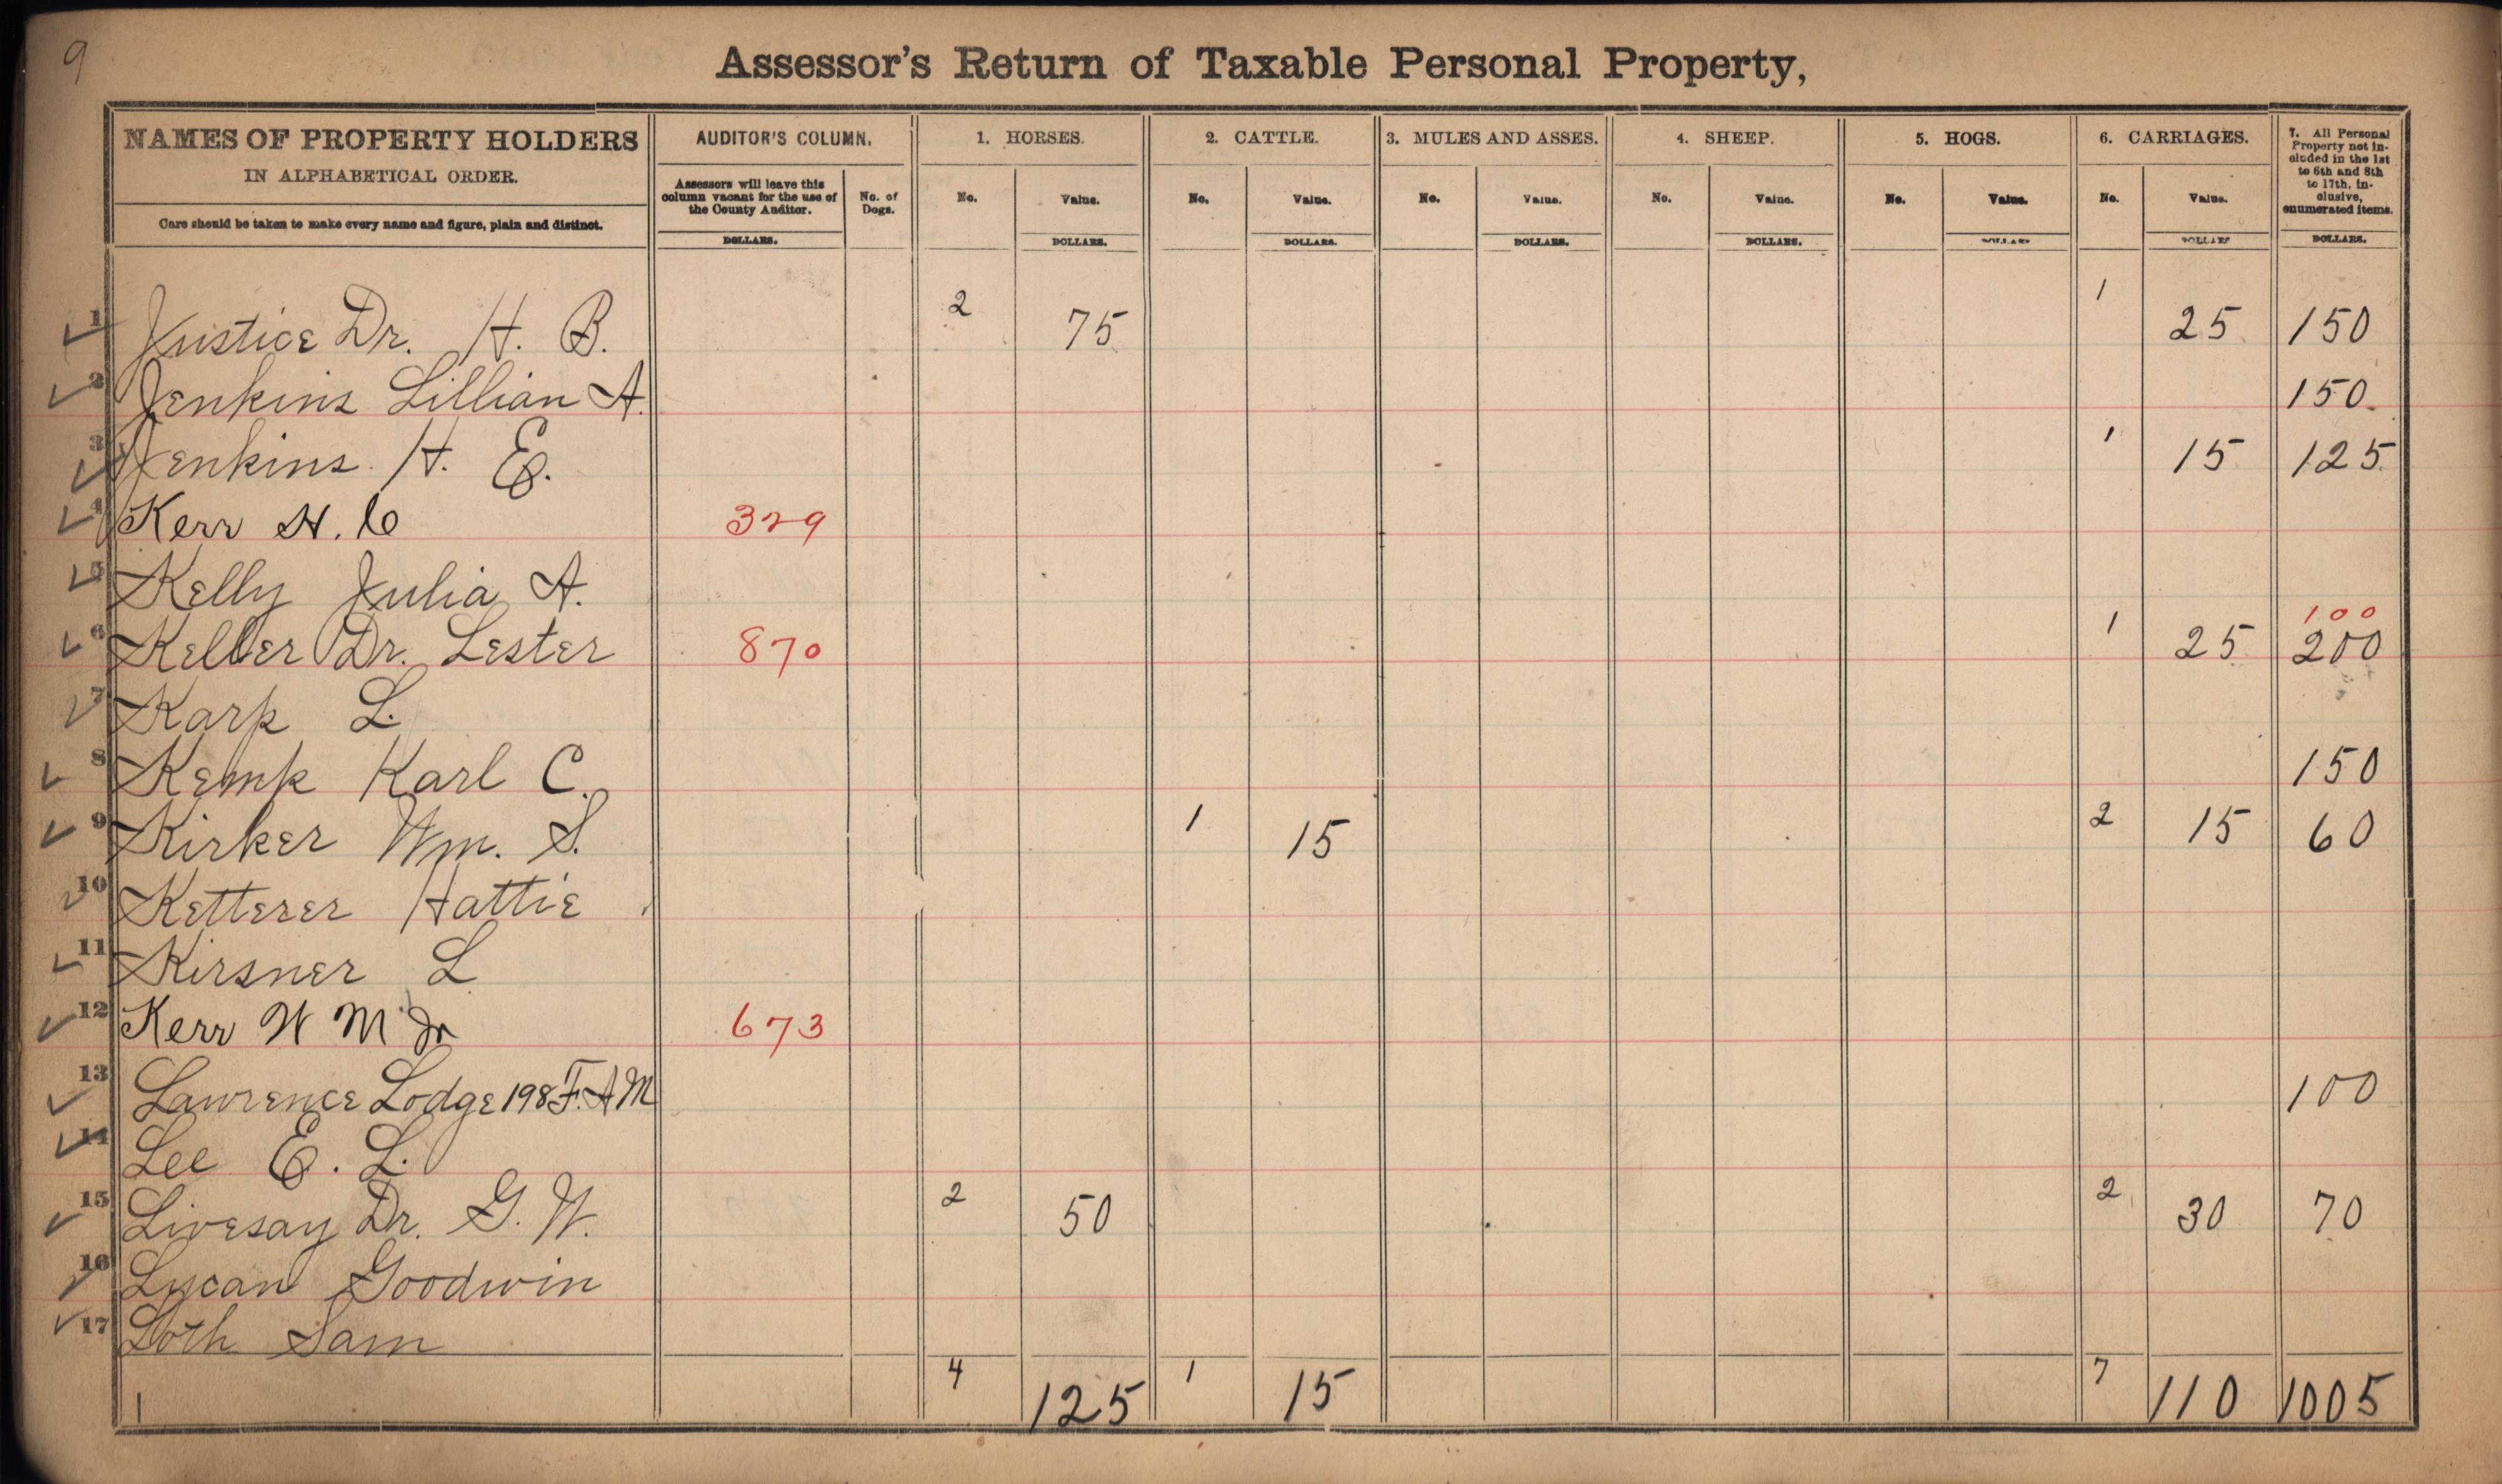 9
Assessor's Return of Taxable Personal Property,
NAMES OF PROPERTY HOLDERS
IN ALPHABETICAL ORDER.
Care should be taken to make every name and figure, plain and distinct.
AUDITOR'S COLUMN.
Assessors will leave this column vacant for the use of the County Auditor.
DOLLARS.
No. of Dogs.
1. HORSES.
No. Value.
DOLLARS.
2. CATTLE.
No. Value.
DOLLARS.
3. MULES AND ASSES.
No. Value.
DOLLARS.
4. SHEEP.
No. Value.
DOLLARS.
5. HOGS.
No. Value.
DOLLARS
6. CARRIAGES.
No. Value.
DOLLARS
7. All Personal
Property not in-
cluded in the 1st
to 6th and 8th
to 17th, in-
clusive,
enumerated items.
DOLLARS.
1 Justice Dr. H. B. 2 75 1 25 150
2 Jenkins Lillian A. 150
3 Jenkins H. E. 1 15 125
4 Kerr H. C 329
5 Kelly Julia A.
6 Keller Dr. Lester 870 1 25 100 200
7 Karp L.
8 Kemp Karl C. 150
9 Kirker Wm. S. 1 15 2 15 60
10 Ketterer Hattie
11 Kirsner L
12 Kerr W M Jr 673
13 Lawrence Lodge 198 F. A M 100
14 Lee E. L.
15 Livesay Dr. G. W. 2 50 2 30 70
16 Lycan Goodwin
17 Loth Sam
4 125 1 15 7 110 1005